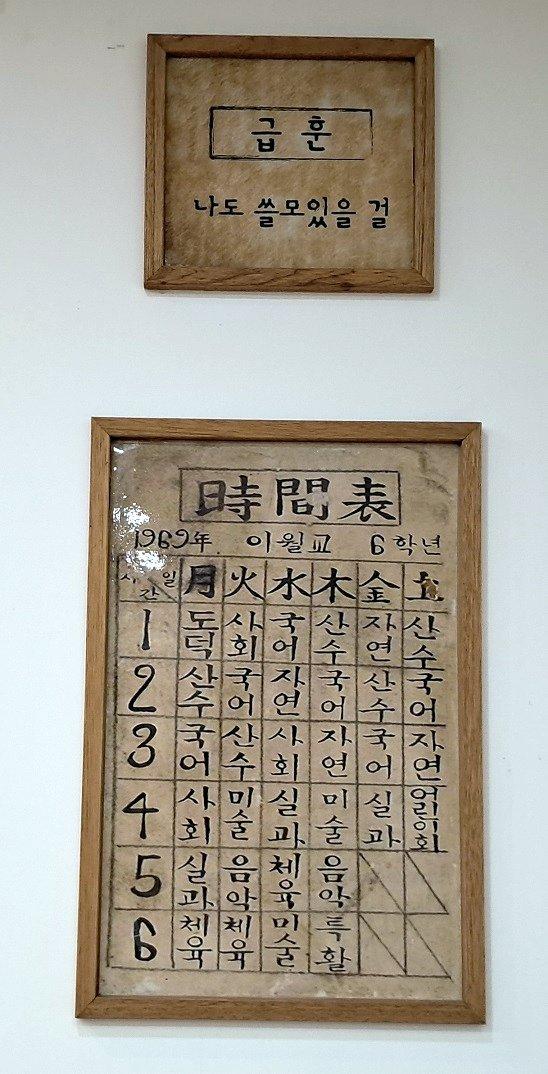 급훈
나도 쓸모있을 걸
時間表
1969年 이월교 6학년
시간 일 月 火 水 木 金 土
1 도덕 사회 국어 산수 자연 산수
2 산수 국어 자연 국어 산수 국어
3 국어 산수 사회 자연 국어 자연
4 사회 미술 실과 미술 실과 어린이회
5 실과 음악 체육 음악
6 체육 체육 미술 특활